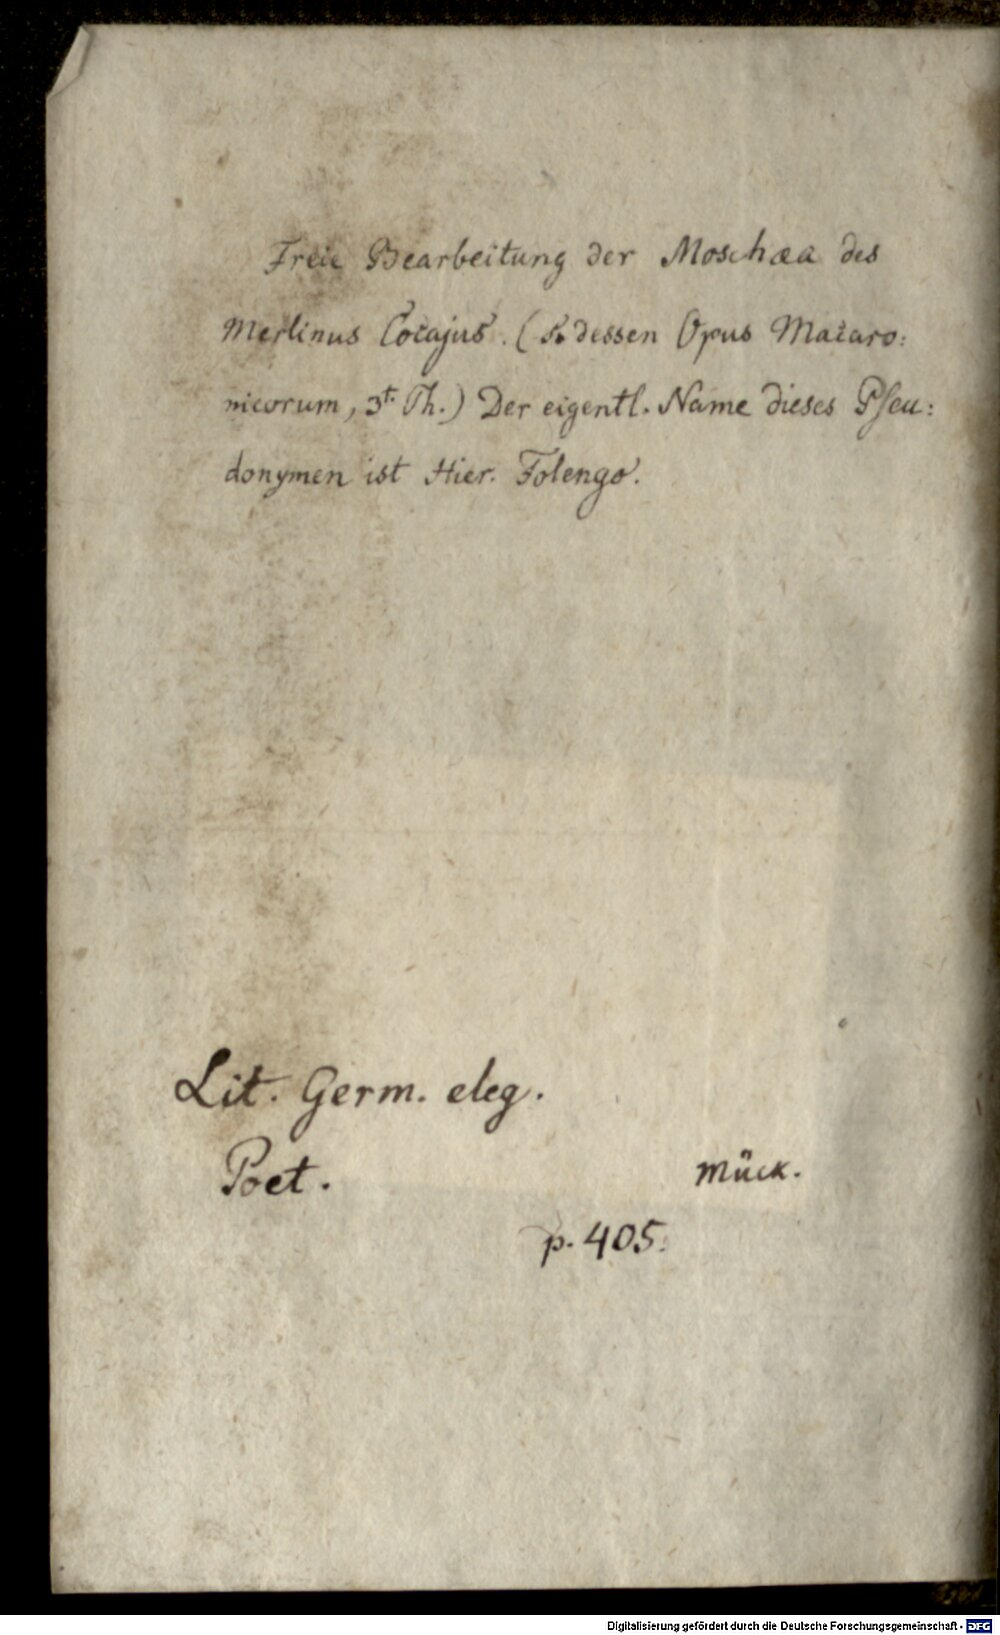 Freie Bearbeitung der Moschæa des
Merlinus Cocajus. (S. dessen Opus Macaro:
nicorum, 3t. Th.) Der eigentl. Name dieses Pseu:
donymen ist Hier. Folengo.
Lit. Germ. eleg.
Poet.
Mück.
p. 405.
Digitalisierung gefördert durch die Deutsche Forschungsgemeinschaft - DFG